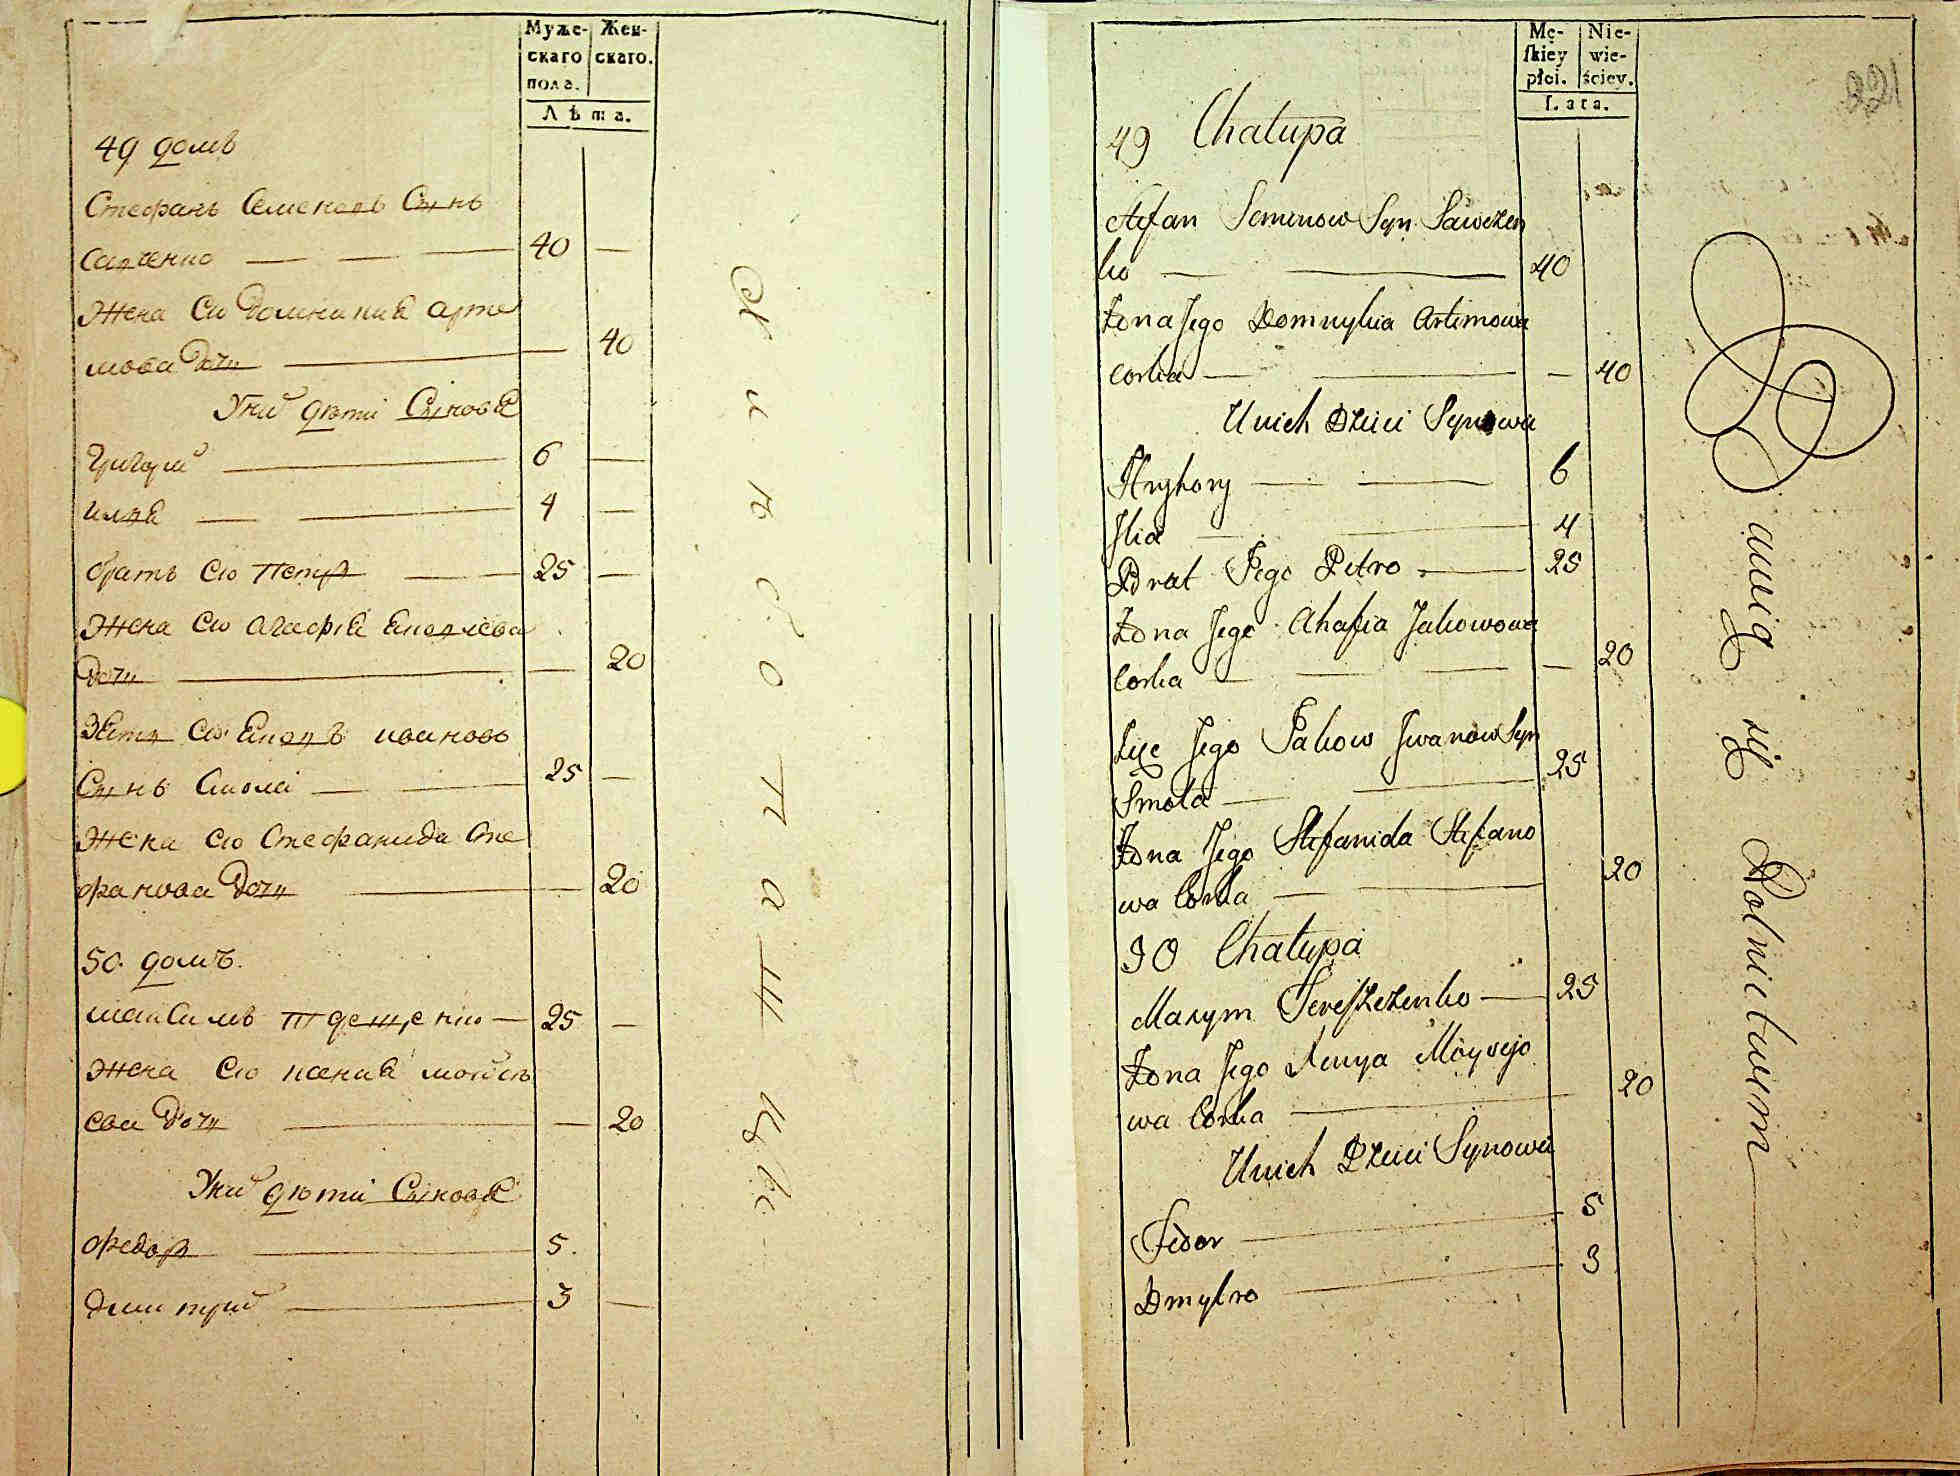 Муже-
скаго
пола.
Жен-
скаго.
Лѣта.
49 домъ
Стефанъ Семеновъ Сынъ
Савченко — — — 40 —
Жена Єю Домникиѣ Арте
мова Дочь — 40
Уних дѣти Сыновѣ
Григорий — 6 —
Илѣѣ — — 4 —
братъ Єю Петръ — — 25 —
Жена Єю Агафиѣ
Дочь — — 20
Зѣть Єю ивановъ
Сынъ Смола — — 25 —
Жена Єю Стефанида Сте
фанова Дочь — — 20
50 домъ.
Максимъ — 25 —
Жена Єю ксениѣ мойсѣ
ева Дочь — — 20
Уних дѣти Сыновѣ
Федоръ — 5.
Димитрий — 3 —
Mę-
ſkiey
płci.
Nie-
wie-
ściey.
Lata.
221
49 Chałupa
Stefan Semenow Syn Sawczen
ko — — 40
Żona Jego Domnykia Artimowa
Corka — — — 40
Unich Dzieci Synowie
Hryhory — — 6
Jlia — — 4
Brat Jego Petro — 25
Żona Jego Ahafia Jakowowa
Corka — — — — 20
Zięć Jego Jakow Jwanow Syn
Smoła — — 25
Żona Jego Stefanida Stefano
wa Corka — — 20
50 Chałupa
Maxym Tereszczenko — 25
Żona Jego Xenya Moysejo
wa Corka — 20
Unich Dzieci Synowie
Fedor — 5
Dmytro — 3
się Rolnictwem